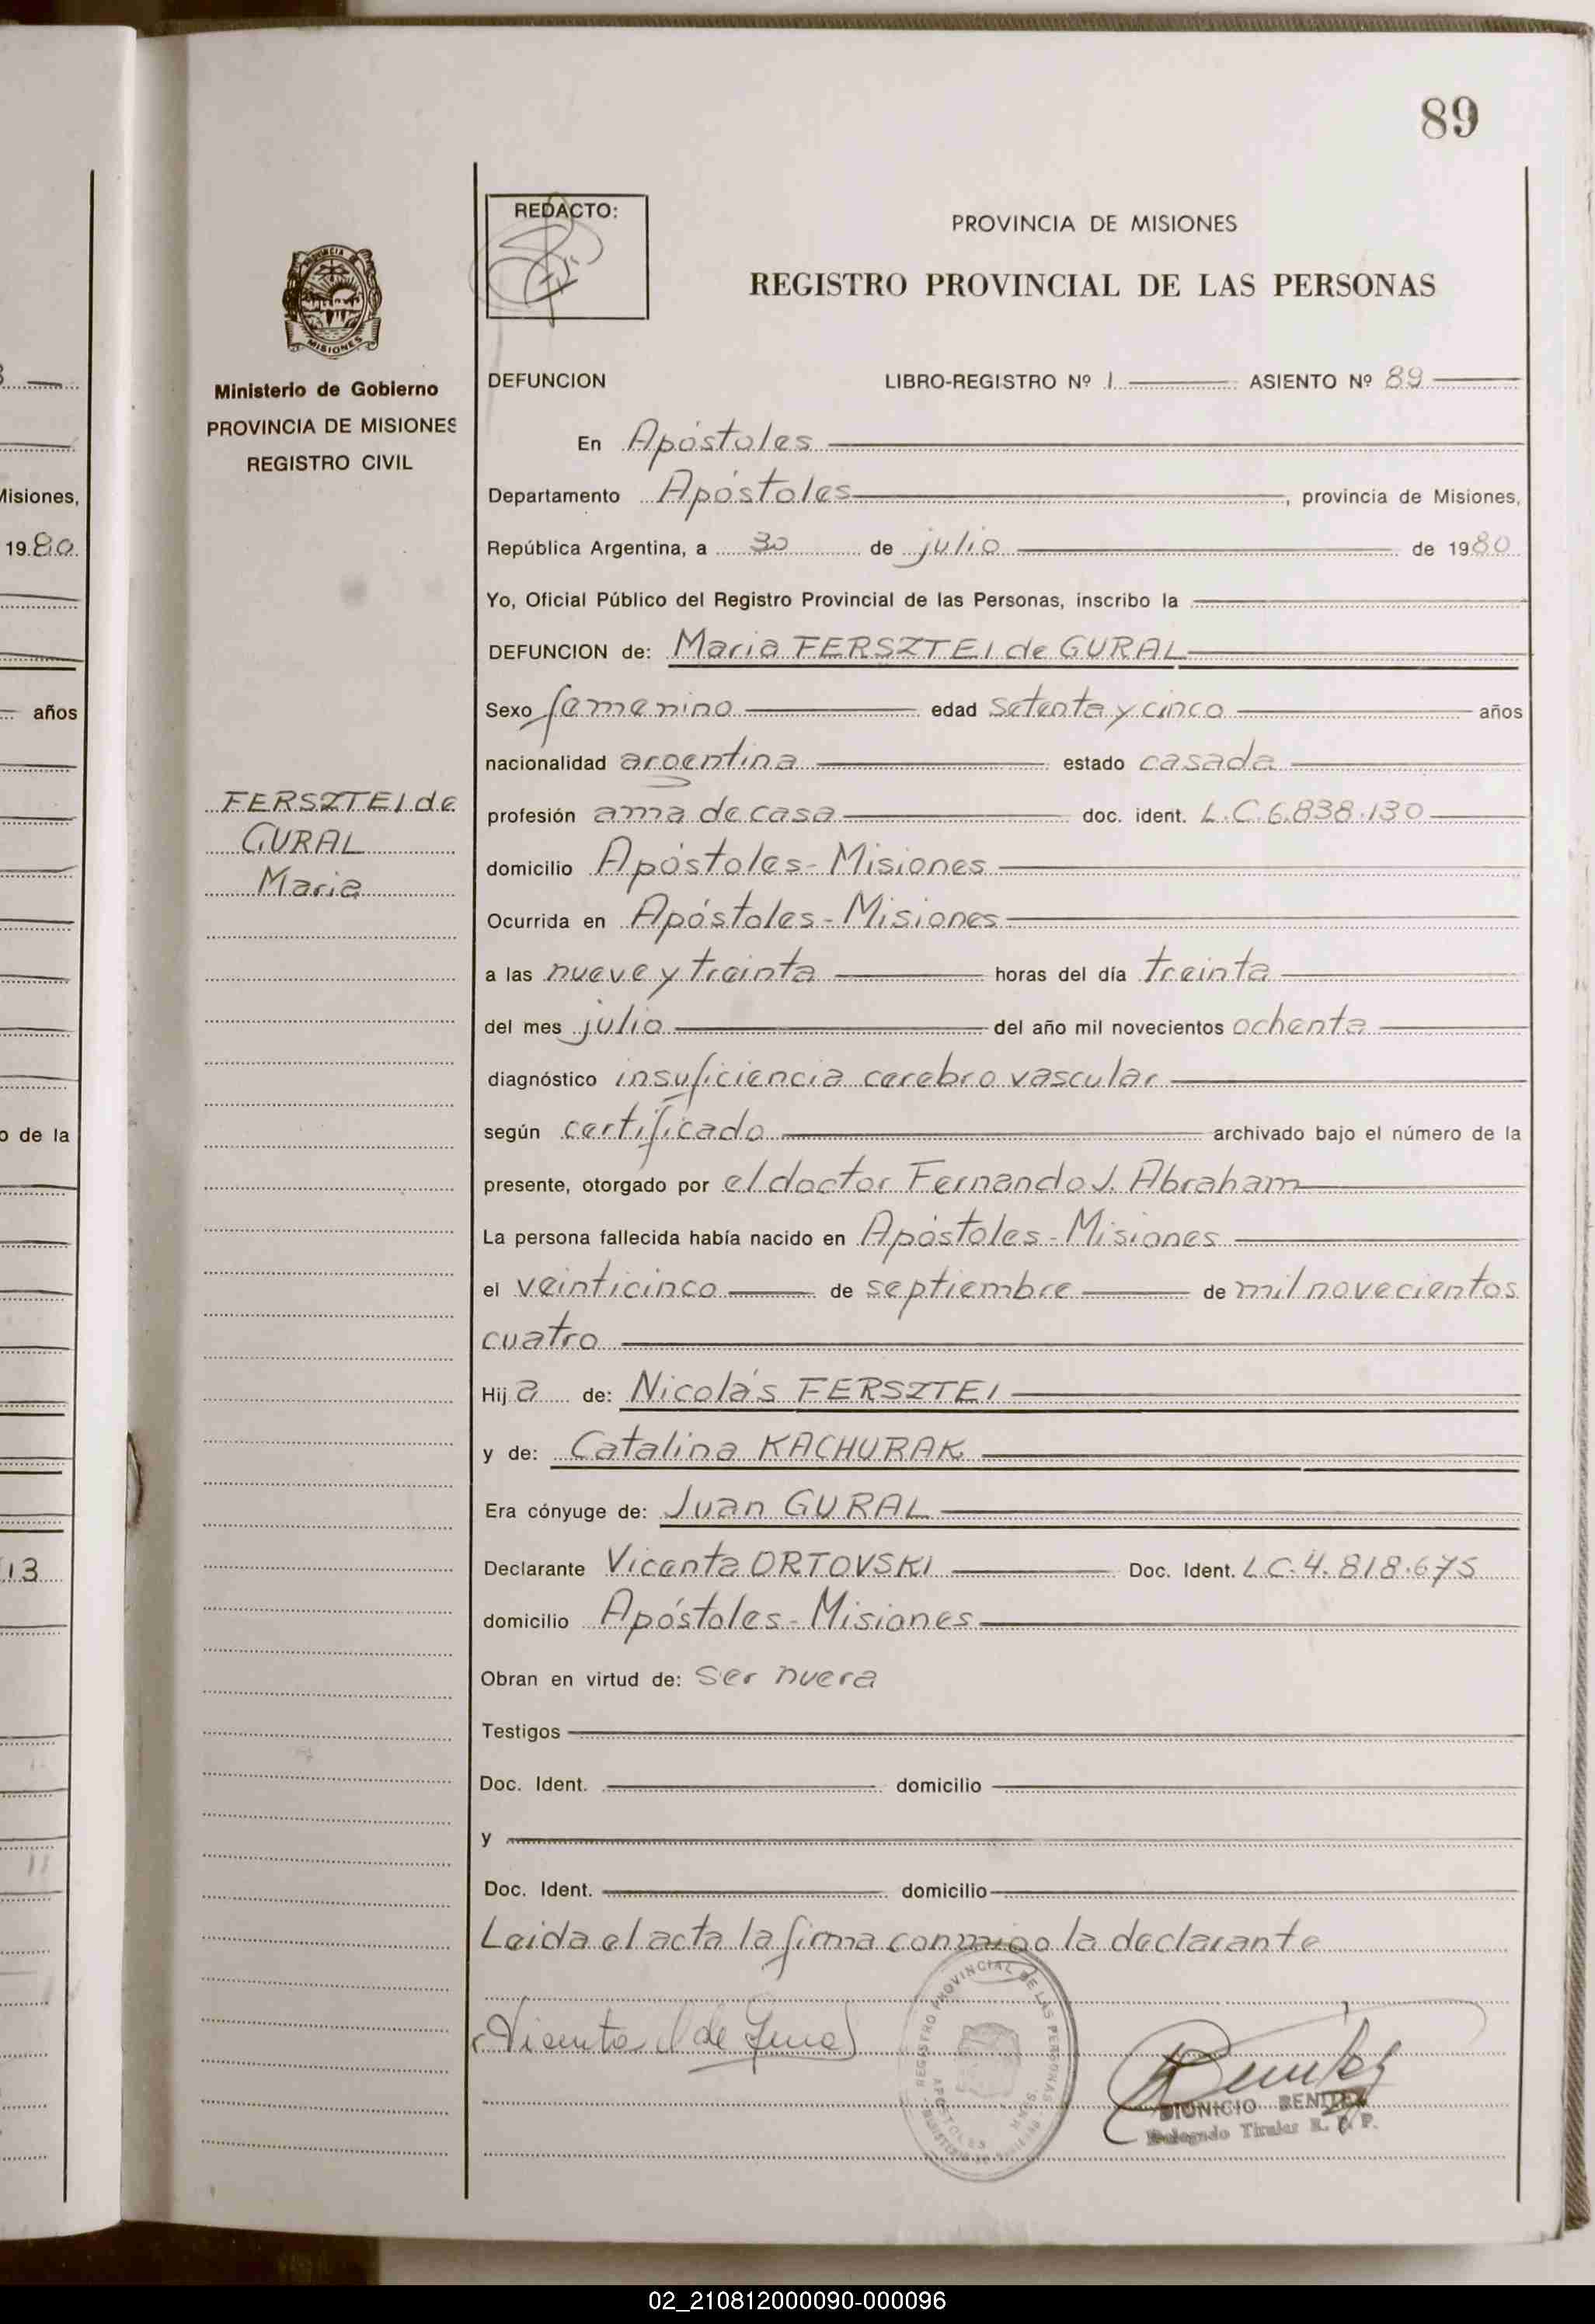 89
REDACTO:
PROVINCIA DE MISIONES
REGISTRO PROVINCIAL DE LAS PERSONAS
PROVINCIA DE
MISIONES
Ministerio de Gobierno
PROVINCIA DE MISIONES
REGISTRO CIVIL
DEFUNCION LIBRO-REGISTRO Nº 1 ASIENTO Nº 89
En Apóstoles
Departamento Apóstoles, provincia de Misiones,
República Argentina, a 30 de julio de 1980
Yo, Oficial Público del Registro Provincial de las Personas, inscribo la
DEFUNCION de: Maria FERSZTEI de GURAL
Sexo femenino edad setenta y cinco años
nacionalidad argentina estado casada
FERSZTEI de
GURAL
Maria
profesión ama de casa doc. ident. L.C. 6.838.130
domicilio Apóstoles - Misiones
Ocurrida en Apóstoles - Misiones
a las nueve y treinta horas del día treinta
del mes julio del año mil novecientos ochenta
diagnóstico insuficiencia cerebro vascular
según certificado archivado bajo el número de la
presente, otorgado por el doctor Fernando J. Abraham
La persona fallecida había nacido en Apóstoles - Misiones
el veinticinco de septiembre de mil novecientos
cuatro
Hija de: Nicolás FERSZTEI
y de: Catalina KACHURAK
Era cónyuge de: Juan GURAL
Declarante Vicenta ORTOVSKI Doc. Ident. L C. 4. 818.675
domicilio Apóstoles - Misiones
Obran en virtud de: ser nuera
Testigos
Doc. Ident. domicilio
y
Doc. Ident. domicilio
Leida el acta la firma conmigo la declarante
Vicenta de
REGISTRO PROVINCIAL DE LAS PERSONAS
APOSTOLES MNES.
DIONICIO BENITEZ
Delegado Titular R. P. P.
Misiones,
1980
años
o de la
13
02_210812000090-000096